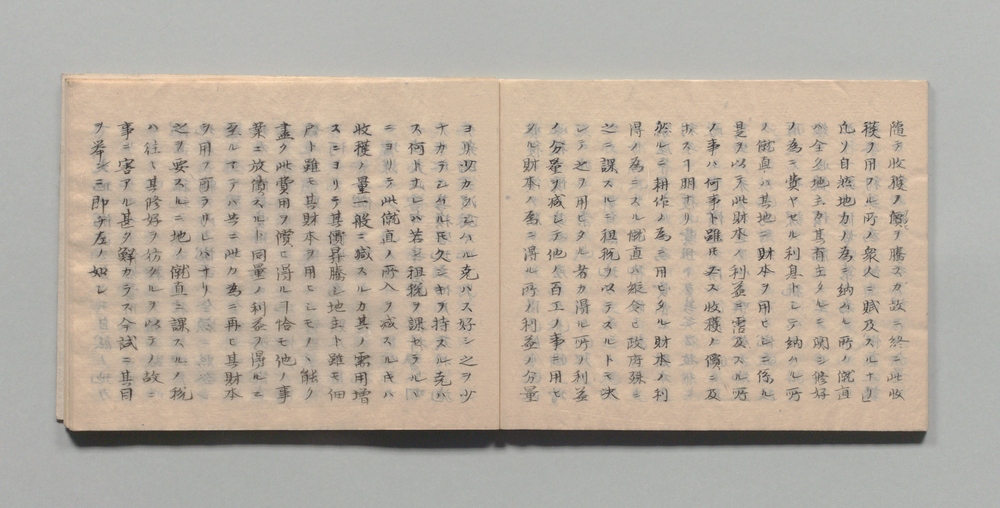 隨テ收穫ノ價ヲ騰スカ故ニ終ニ此收
穫ヲ用フル所ノ衆人ニ賦及スルナリ」
凡ソ自然地力ノ為ニ納ムヒ所ノ僦直
ハ全ク地主タ其有主タルニ関シ修好
ノ為ニ費ヤセル利息トシテ納ムル所
ノ僦真ハ其地ニ財本ヲ用ヒシニ係ル
是ヲ以テ此財本ノ利益ニ害及スル所
ノ事ハ何事ト雖モ亦ス收穫ノ價ニ及
ホスヿ明ナリ
然ルニ耕作ノ為ニ用ヒタル財本ノ利
得ノ為ニスル僦直ハ縦令ヒ政府殊ニ
之ニ課スルニ租税ヲ以テスルトモ决
シテ之ヲ用ヒタル者カ得ル所ノ利益
ノ分量ヲ減シテ他ノ百工ノ事ニ用ヒ
タル財本ノ為ニ得ル所ノ利益ノ分量
ヨリ少カラシムル克ハス好シ之ヲ少
ナカラシムル氏久シキヲ持スル克ハ
ス何トナレハ若シ租税ヲ課セラルヽ
ニヨリテ此僦直ノ所入ヲ減スルキハ
收穫ノ量一般ニ減スルカ其ノ需用増
スニヨリテ其價昇騰シ地主ト雖モ佃
戸ト雖モ其財本ヲ用ヒシモノハ能ク
盡ク此費用ヲ償ヒ得ルヿ恰モ他ノ事
業ニ放債スルト同量ノ利益ヲ得ルニ
至ルナラテハ共ニ此カ為ニ再ヒ其財本
ヲ用フ可ラサレハナリ
之ヲ要スルニ地ノ僦直ニ課スルノ税
ハ往々其修好ヲ妨クルヲ以テノ故ニ
事ニ害アル甚タ鮮カラス今試ニ其目
ヲ挙シニ即チ左ノ如シ